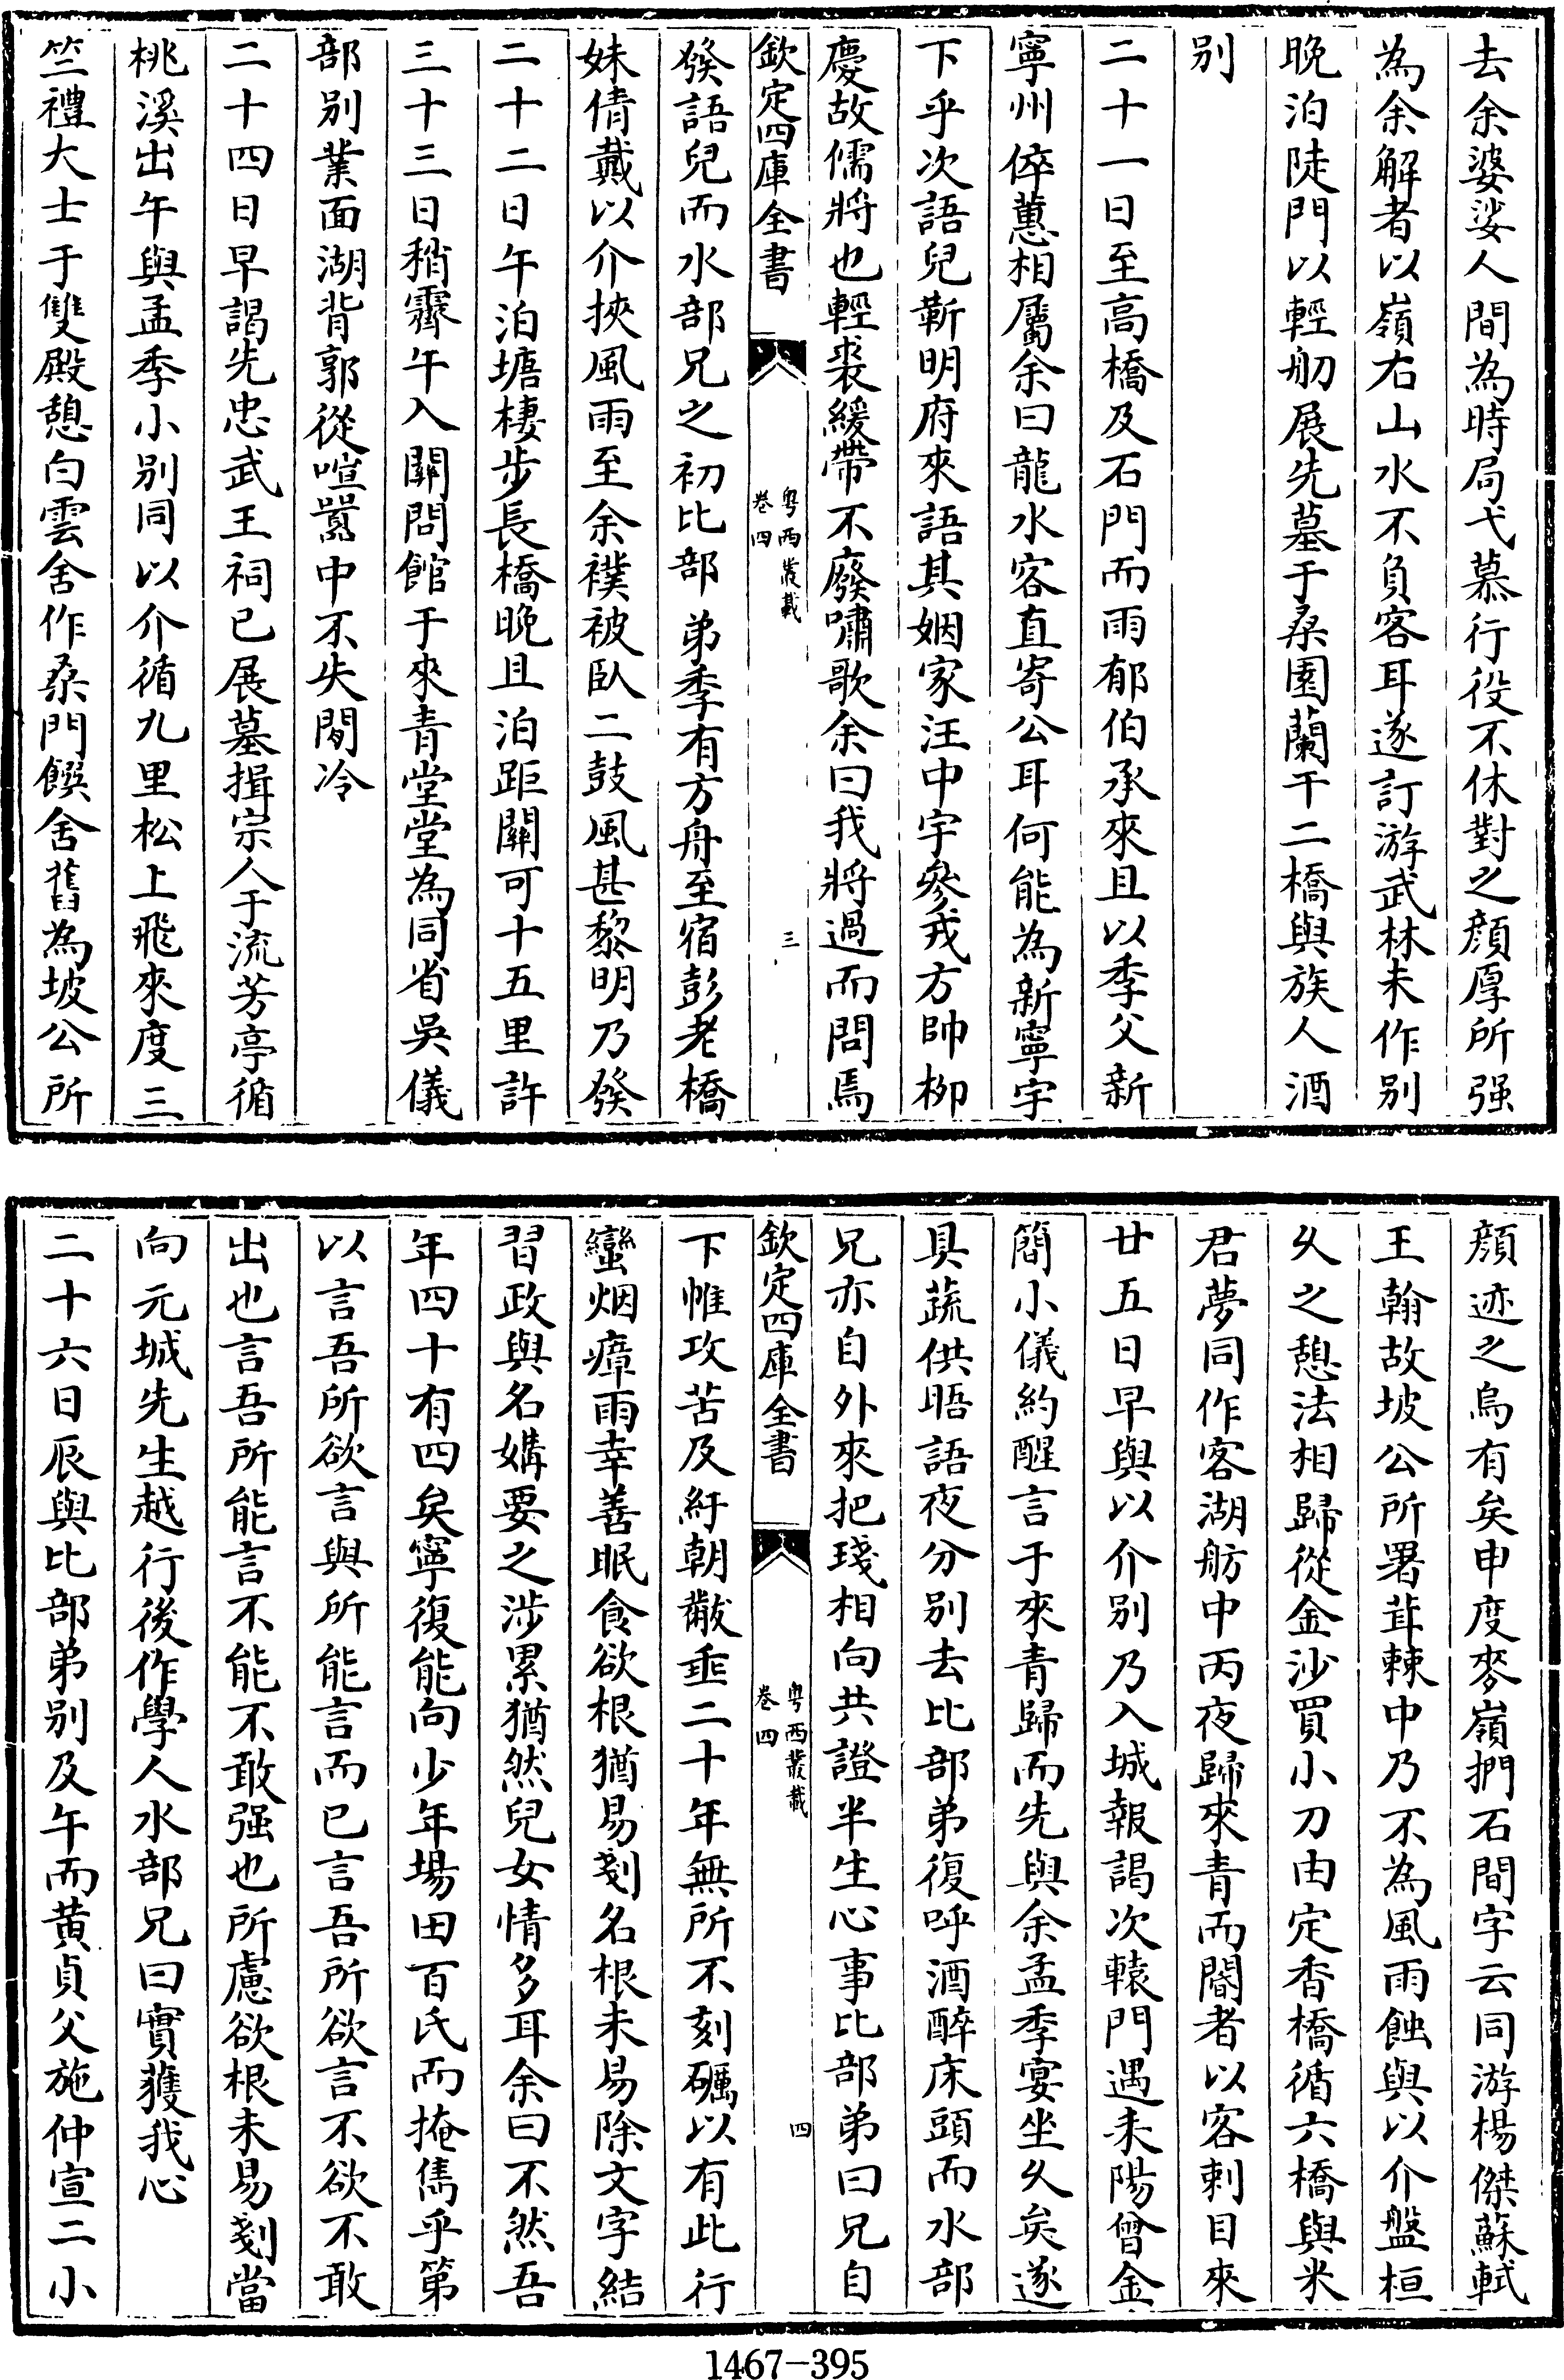 去余婆娑人間為時局弋慕行役不休對之顏厚所强
為余解者以嶺右山水不負客耳遂訂游武林未作别
晚泊陡門以輕舠展先墓于桑園蘭干二橋與族人酒
别
二十一日至高橋及石門而雨郁伯承來且以季父新
寧州倅蕙相屬余曰龍水客直寄公耳何能為新寧宇
下乎次語兒靳明府來語其姻家汪中宇參戎方帥柳
慶故儒將也輕裘緩帶不廢嘯歌余曰我將過而問焉
欽定四庫全書
粵西叢載
卷四
三
發語兒而水部兄之初比部弟季有方舟至宿彭老橋
妹倩戴以介挾風雨至余襆被臥二鼓風甚黎明乃發
二十二日午泊塘棲步長橋晚且泊距關可十五里許
三十三日稍霽午入關問館于來青堂堂為同省吳儀
部别業面湖背郭從喧囂中不失閒冷
二十四日早謁先忠武王祠已展墓揖宗人于流芳亭循
桃溪出午與孟季小别同以介循九里松上飛來度三
竺禮大士于雙殿憩白雲舍作桑門饌舍舊為坡公所
顏迹之烏有矣申度麥嶺捫石間字云同游楊傑蘇軾
王翰故坡公所署茸棘中乃不為風雨蝕與以介盤桓
乆之憩法相歸從金沙買小刀由定香橋循六橋與米
君夢同作客湖舫中丙夜歸來青而閽者以客刺目來
廿五日早與以介别乃入城報謁次轅門遇耒陽曾金
簡小儀約醒言于來青歸而先與余孟季宴坐乆矣遂
具蔬供晤語夜分别去比部弟復呼酒醉床頭而水部
兄亦自外來把琖相向共證半生心事比部弟曰兄自
欽定四庫全書
粵西叢載
卷四
四
下帷攻苦及紆朝黻垂二十年無所不刻礪以有此行
蠻烟瘴雨幸善眠食欲根猶易剗名根未易除文字結
習政與名媾要之涉累猶然兒女情多耳余曰不然吾
年四十有四矣寧復能向少年場田百氏而掩雋乎第
以言吾所欲言與所能言而已言吾所欲言不欲不敢
出也言吾所能言不能不敢强也所慮欲根未易剗當
向元城先生越行後作學人水部兄曰實獲我心
二十六日辰與比部弟别及午而黄貞父施仲宣二小
1467-395